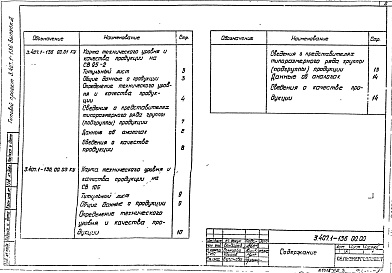 Обозначение Наименование Стр.
3.407.1-136 00.01 КУ Карта технического уровня и
качества продукции на
СВ 95-2
Титульный лист 3
Общие данные о продукции 3
Определение технического уров-
ня и качества продук-
ции 4
Сведения о представителях
типоразмерного ряда группы
(подгруппы) продукции 7
Данные об аналогах 8
Сведения о качестве
продукции 8
Карта технического уровня и
качества продукции на
СВ 105
Титульный лист 9
Общие данные о продукции 9
Определение технического
уровня и качества про-
дукции 10
Обозначение Наименование Стр.
Сведения о представителях
типоразмерного ряда группы
(подгруппы) продукции 13
Данные об аналогах 14
Сведения о качестве про-
дукции 14
3.407.1-136 00.00
Содержание